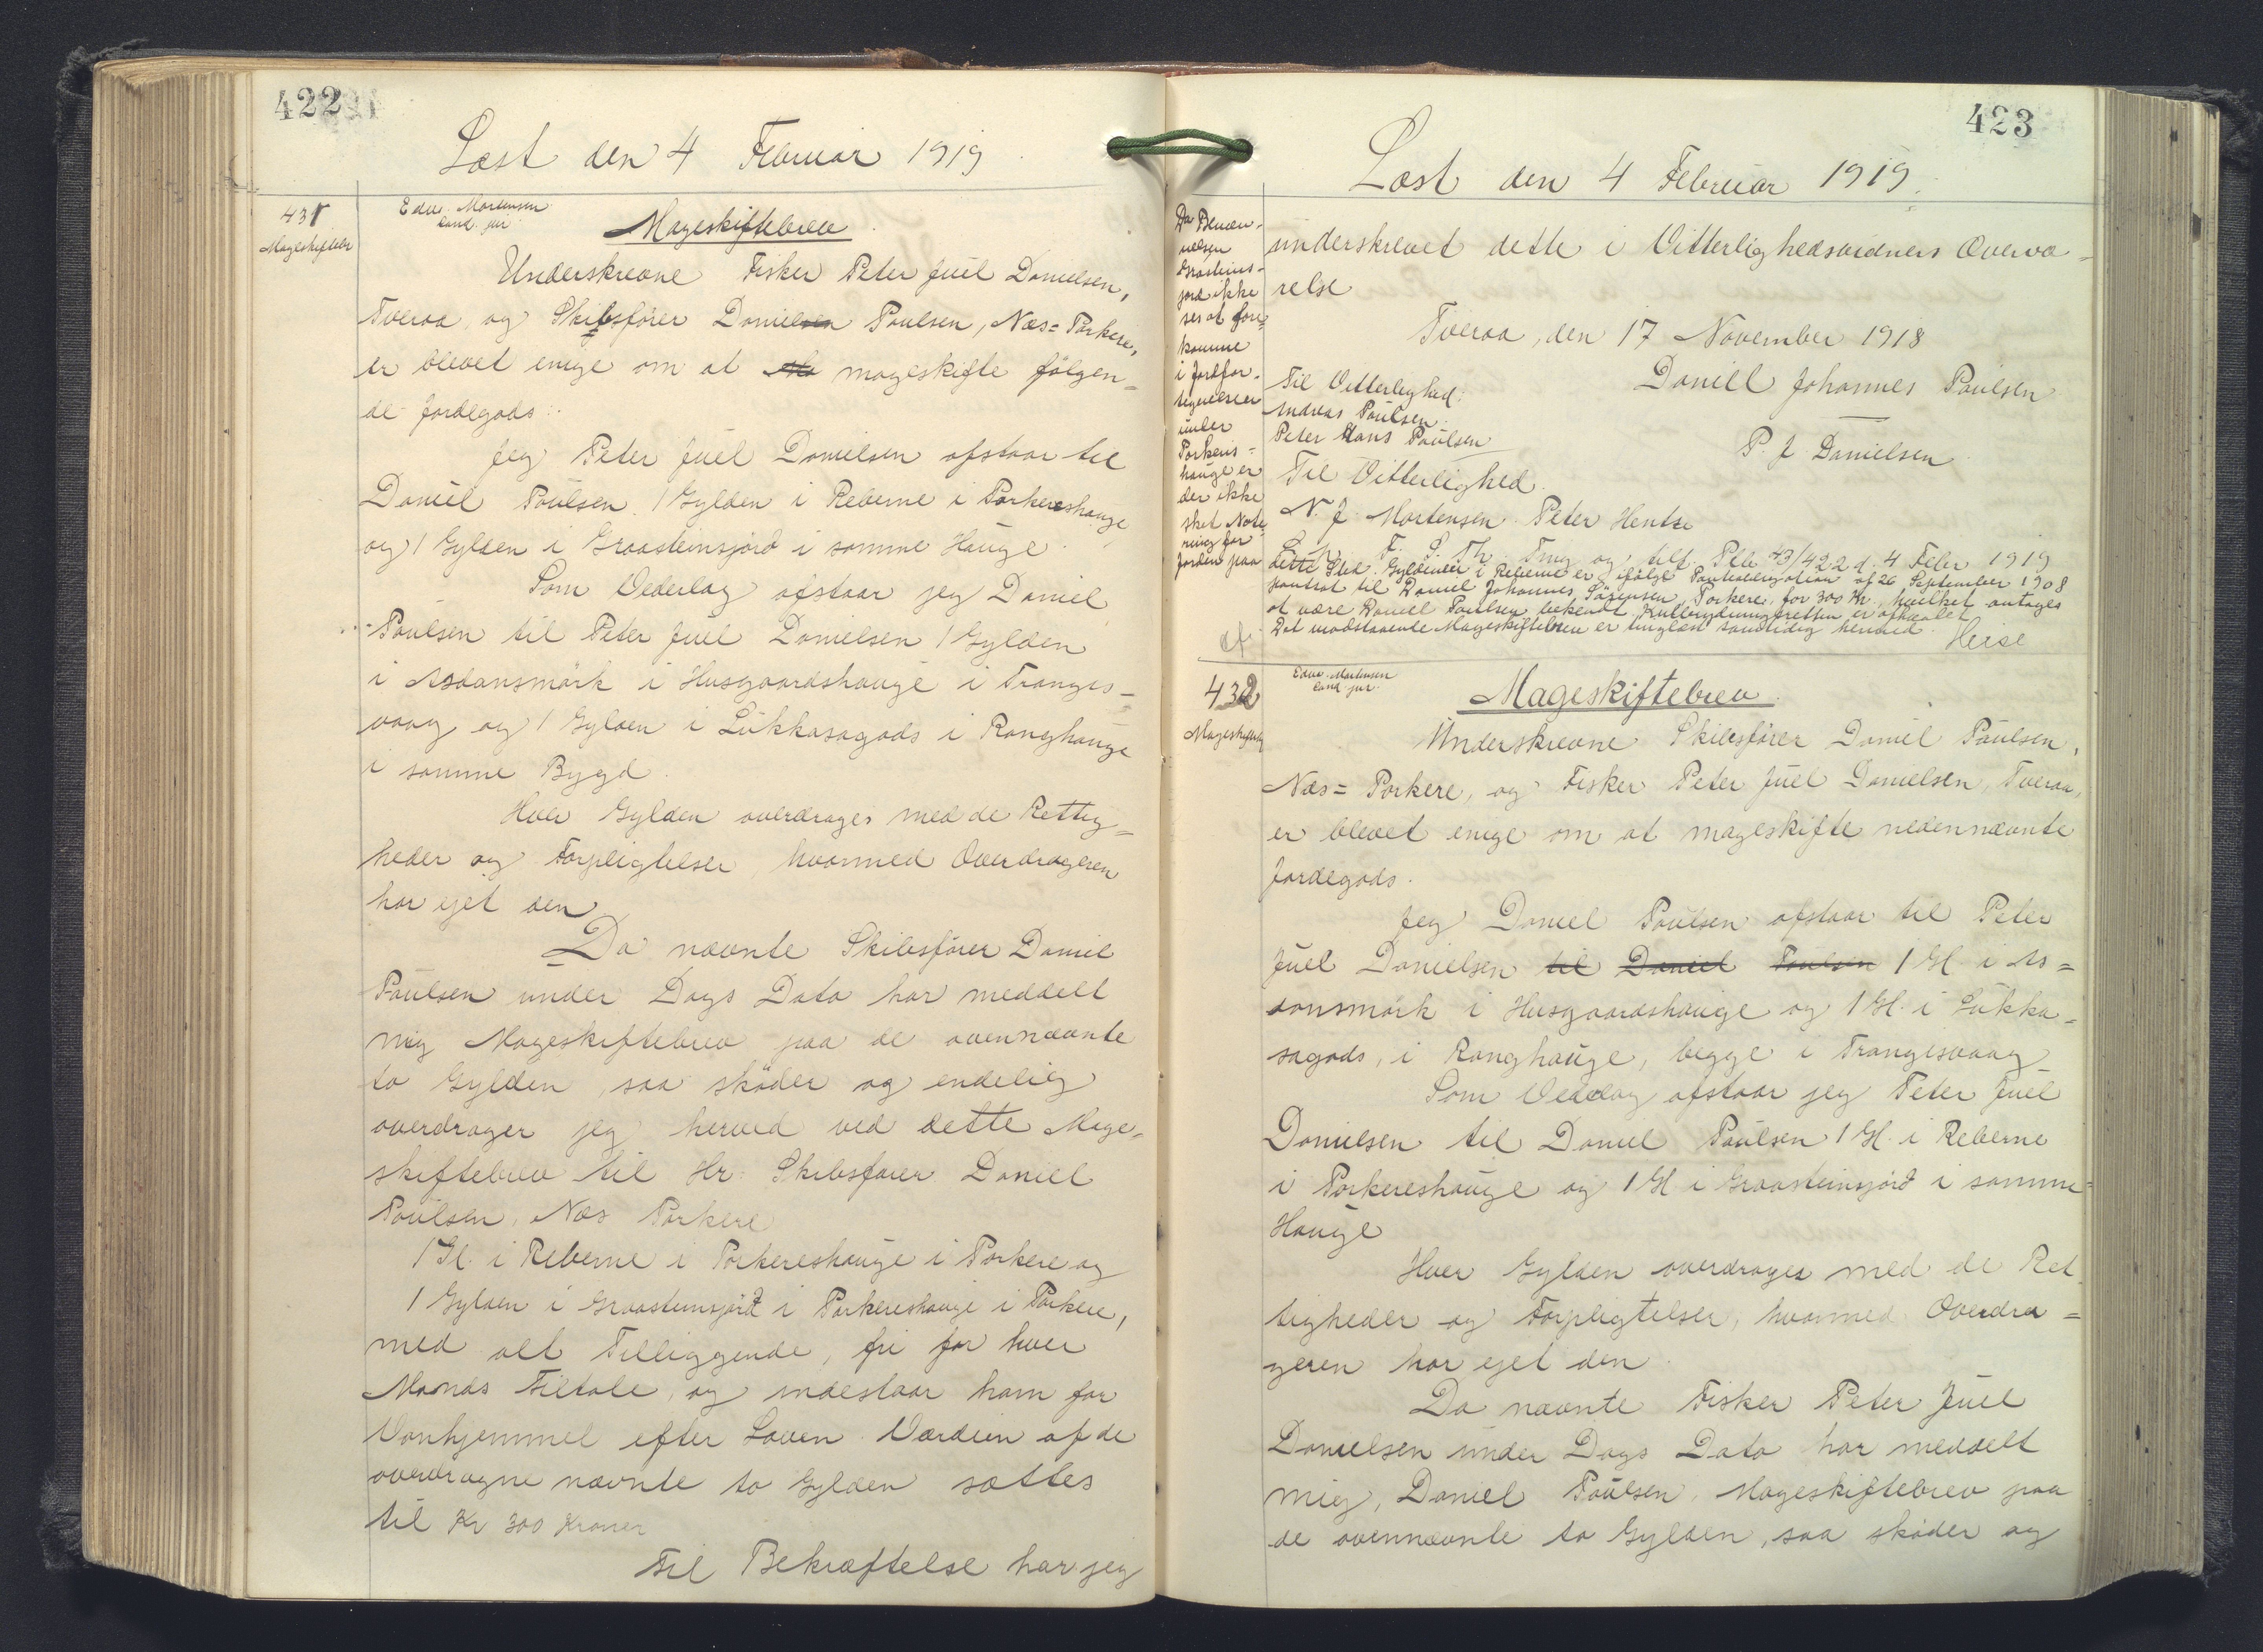 422
Læst den 4 Februar 1919
431
Mageskiftebr
Edw. Mortensen
cand. jur.
Mageskiftebrev
Underskrevne Fisker Peter Juel Danielsen,
Tveraa, og Skibsfører Daniel Poulsen, Næs=Porkere,
er blevet enige om at mageskifte følgen=
de Jordegods:
Jeg Peter Juel Danielsen afstaar til
Daniel Poulsen 1 Gylden i Reberne i Porkereshauge
og 1 Gylden i Graasteinsjørd i samme Hauge.
Som Vederlag afstaar jeg Daniel
Poulsen til Peter Juel Danielsen 1 Gylden
i Asdansmørk i Husgaardshauge i Trangis=
vaag og 1 Gylden i Lükkasagods i Ranghauge
i samme Bygd.
Hver Gylden overdrages med de Rettig=
heder og Forpligtelser, hvormed Overdrageren
har ejet den
Da nævnte Skibsfører Daniel
Poulsen under Dags Dato har meddelt
mig Mageskiftebrev paa de ovennævnte
to Gylden, saa skøder og endelig
overdrager jeg herved ved dette Mage=
skiftebrev til Hr. Skibsfører Daniel
Poulsen, Næs Porkere
1 Gl. i Reberne i Porkereshauge i Porkere og
1 Gylden i Graasteinsjørd i Porkereshauge i Porkere,
med alt Tilliggende, fri for hver
Mands Tiltale, og indestaar ham for
Vanhjemmel efter Loven. Værdien af de
overdragne nævnte to Gylden sættes
til Kr 300 Kroner
Til Bekræftelse har jeg
423
Læst den 4 Februar 1919.
Da Benæv=
nelsen
Graasteins=
jørd ikke
ses at fore=
komme
i Jordfor=
tegnelsen
under
Porkeris=
hauge er
der ikke
sket Note=
ring for
Jorden paa
underskrevet dette i Vitterlighedsvidners Overvæ=
relse
Tveraa, den 17 November 1918
Daniel Johannes Poulsen
Til Vitterlighed:
Andreas Poulsen
Peter Hans Poulsen
P. J. Danielsen
Til Vitterlighed.
N. J. Mortensen Peter Hentze
L. p. F. S. Th. Ting og tilf. Pltb 43/422 d. 4 Febr 1919
dette Sted. Gyldenen i Reberne er ifølge Panteobligation af 26 September 1908
pantsat til Daniel Johannes Sörensen, Porkere, for 300 Kr., hvilket antages
at være Daniel Poulsen bekendt. Kulbrydningsretten er afhændet
Det modstaaende Mageskiftebrev er tinglæst samtidig hermed.
Heise
432
Mageskiftebr
Edw. Mortensen
cand. jur.
Mageskiftebrev
Underskrevne Skibsfører Daniel Poulsen,
Næs=Porkere, og Fisker Peter Juel Danielsen, Tveraa,
er blevet enige om at mageskifte nedennævnte
Jordegods.
Jeg Daniel Poulsen afstaar til Peter
Juel Danielsen til Daniel Poulsen 1 Gl. i As=
dansmørk i Husgaardshauge og 1 Gl. i Lükka=
sagods, i Ranghauge, begge i Trangisvaag
Som Vedelag afstaar jeg Peter Juel
Danielsen til Daniel Poulsen 1 Gl. i Reberne
i Porkereshauge og 1 Gl i Graasteinsjørd i samme
Hauge
Hver Gylden overdrages med de Ret
tigheder og Forpligtelser, hvormed Overdra=
geren har ejet den.
Da nævnte Fisker Peter Juel
Danielsen under Dags Dato har meddelt
mig, Daniel Poulsen, Mageskiftebrev paa
de ovennævnte to Gylden, saa skøder og